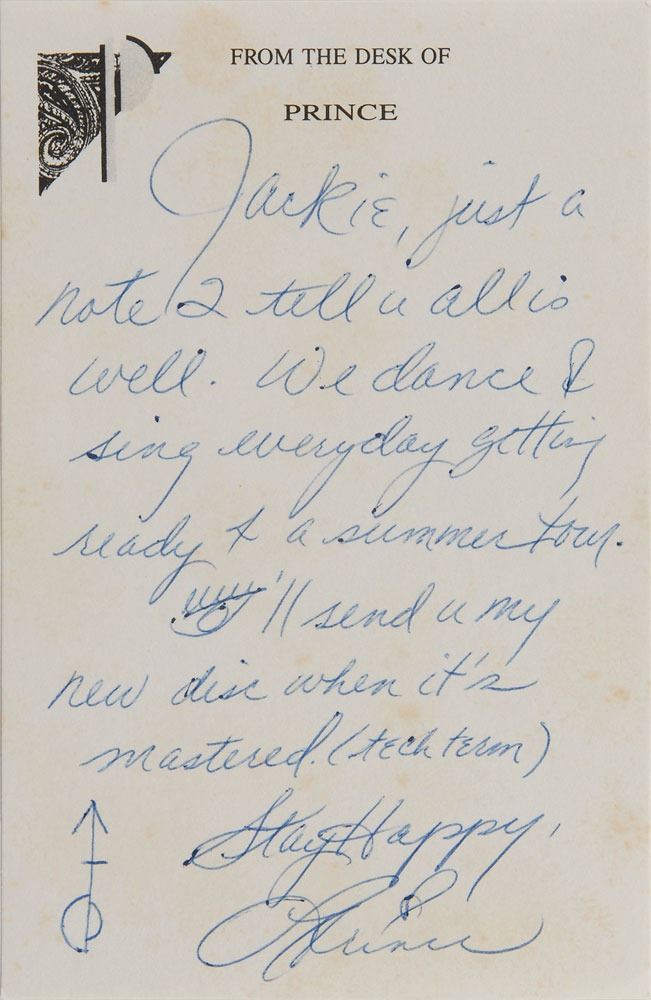 FROM THE DESK OF
PRINCE
Jackie, just a
note 2 tell u all is
well. We dance &
sing everyday getting
ready 4 a summer tour.
'll send u my
new disc when it's
mastered. (tech term)
Stay Happy,
Prince